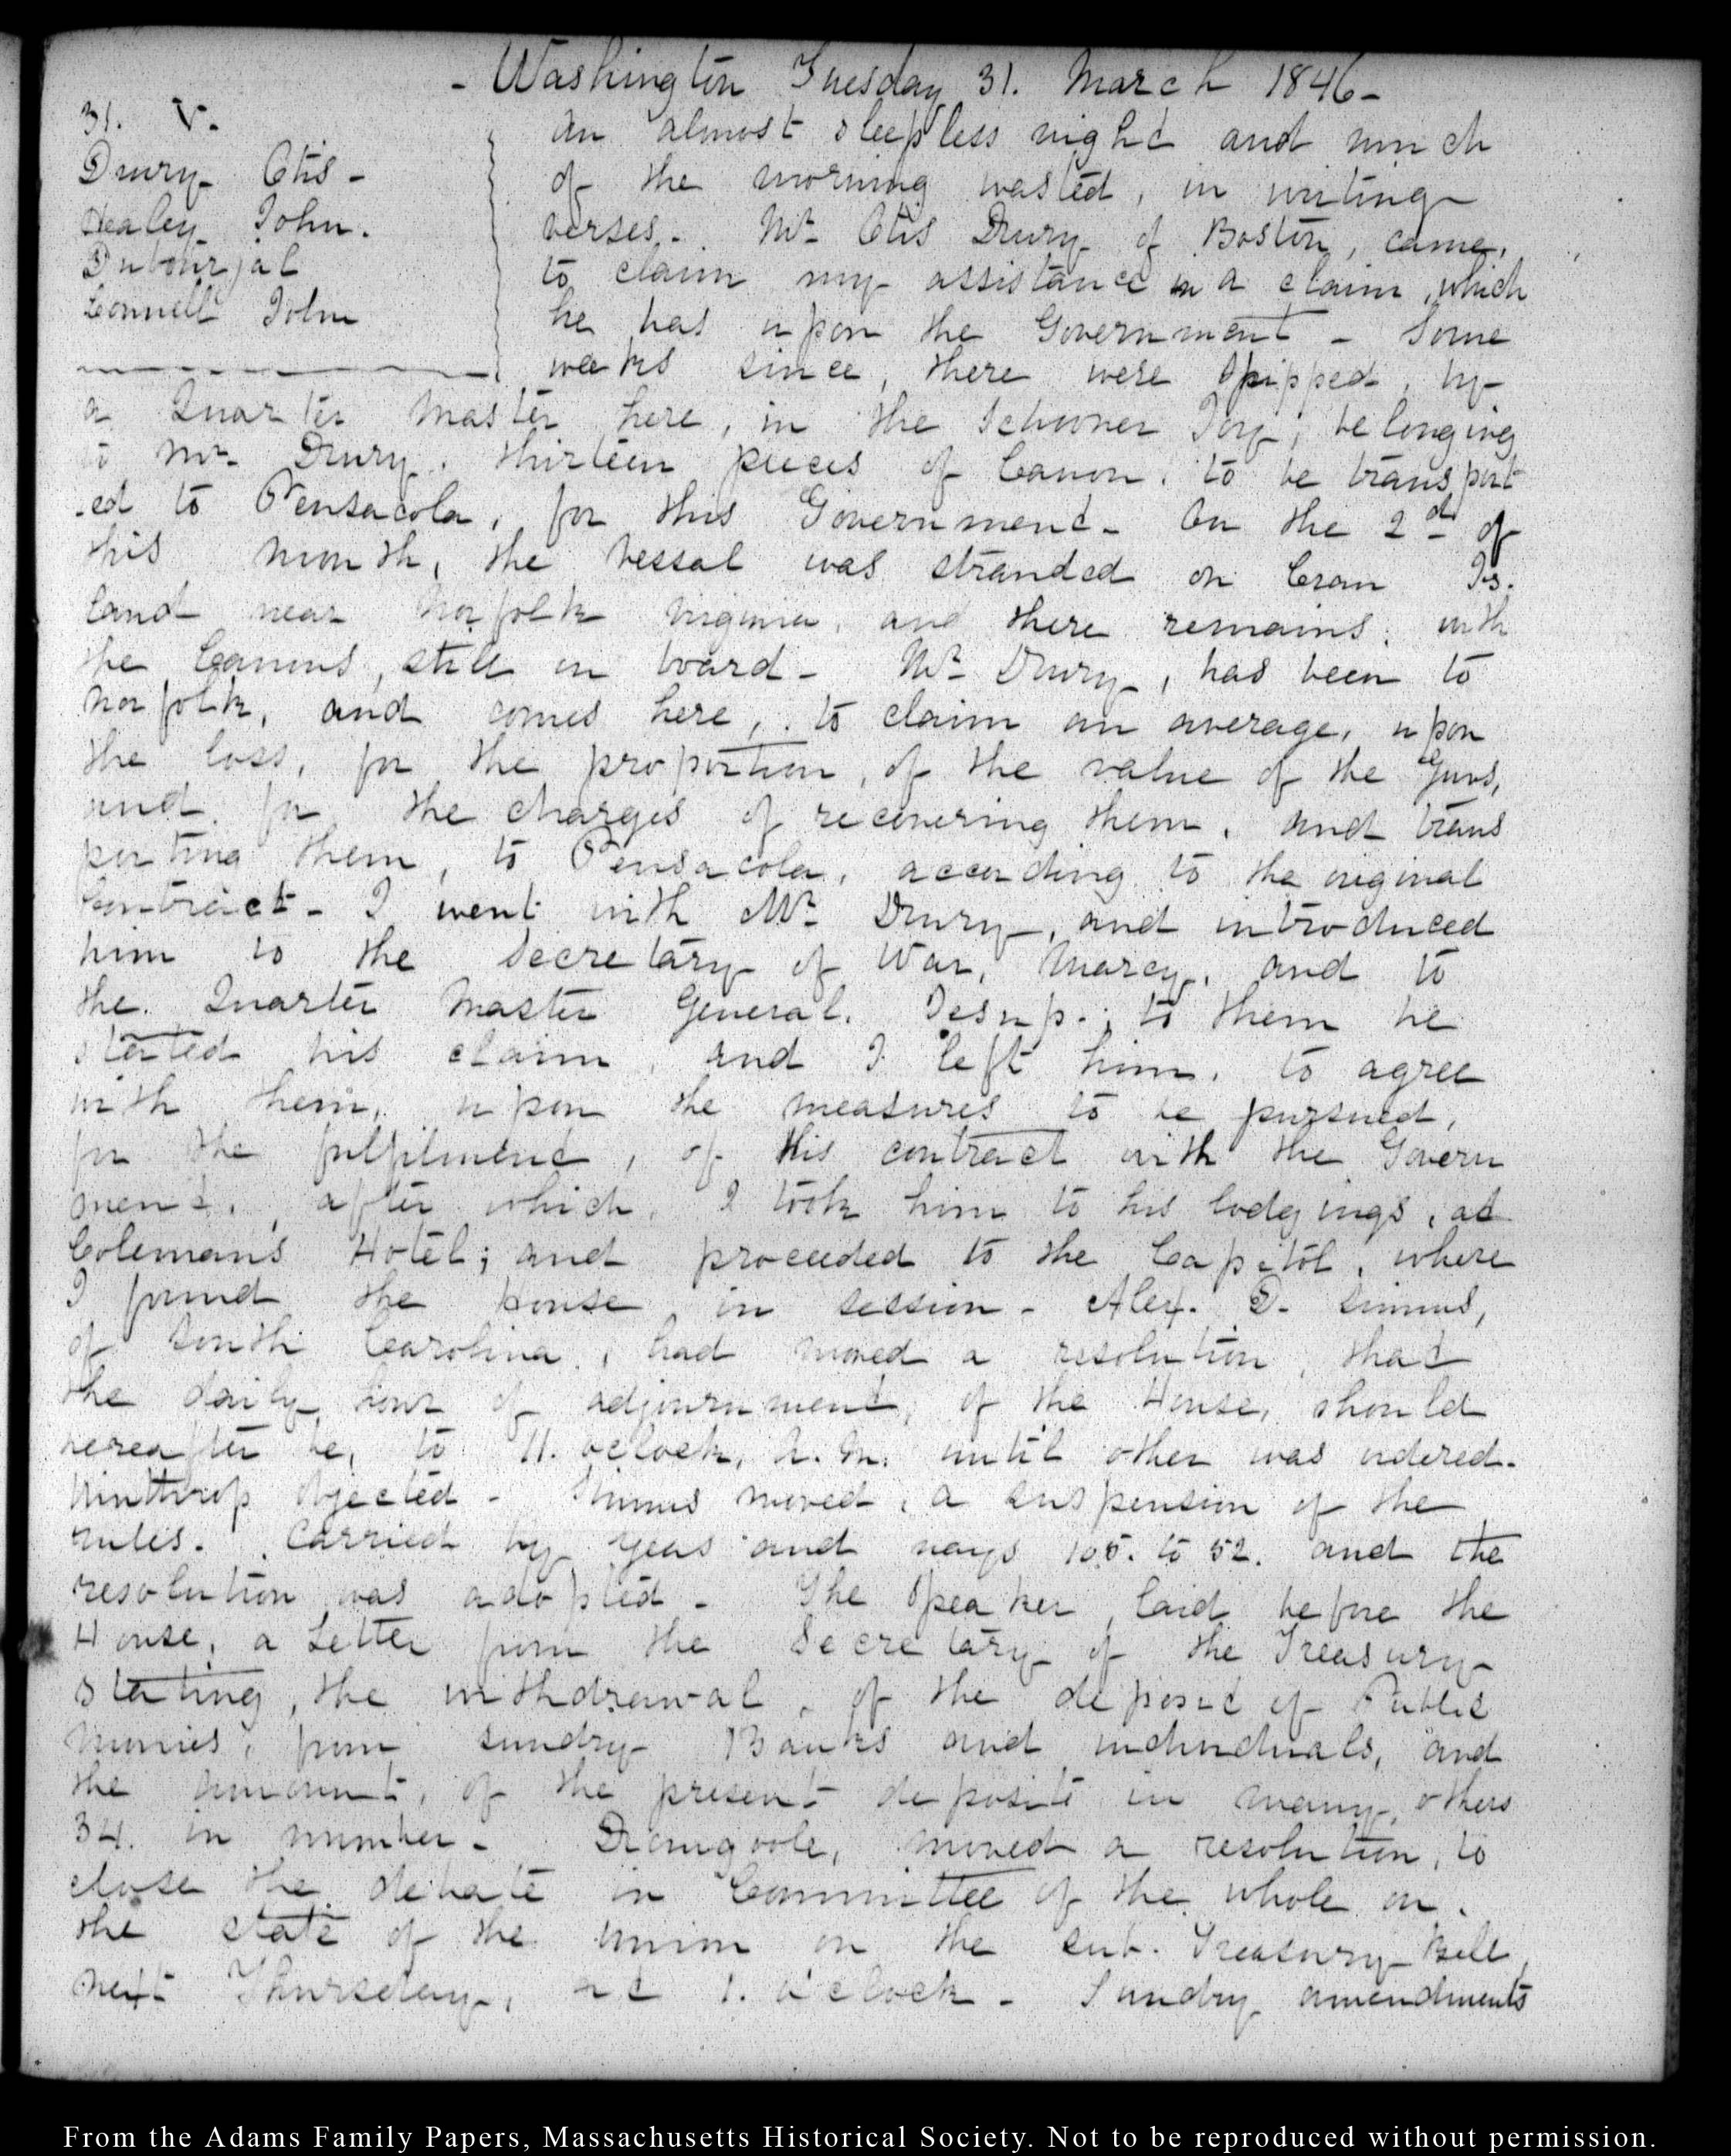 - Washington Tuesday 31. March 1846-
31. V.
Drury Otis -
Healey John.
Dubourjal
Connell John
An almost sleepless night and much
of the morning wasted, in writing
verses-. Mr. Otis Drury of Boston, came,
to claim my assistance in a claim, which
he has upon the Government - Some
weeks since, there were shipped, by
a Quarter Master here, in the Schooner Tory, belonging
to Mr. Drury, thirteen pieces of Canon, to be transport
-ed to Pensacola, for this Government- On the 2d of
this month, the vessel was stranded on Cran Is.
land near Norfolk Virginia, and there remains, with
the Canons, still on board- Mr. Drury, has been to
Norfolk, and comes here, to claim an average, upon
the loss, for the proportion, of the value of the Guns,
and for the charges of recovering them, and trans
porting them, to Pensacola, according to the original
Contract- I went with Mr. Drury, and introduced
him to the Secretary of War, Marcy, and to
the Quarter Master General. Jesup.; to them he
stated his claim, and I left him, to agree
with them, upon the measures to be pursued,
for the fulfilment, of his contract with the Govern
ment, after which, I took him to his lodgings, at
Coleman's Hotel; and proceeded to the Capitol, where
I found the House, in session- Alex. D. Simms,
of South Carolina, had moved a resolution, that
the daily hour of adjournment, of the House, should
hereafter be, to 11. oclock, A.M. until other was ordered-
Winthrop objected- Simms moved, a suspension of the
rules. Carried by yeas and nays 105. to 52. and the
resolution was adopted- The Speaker, laid before the
House, a Letter from the Secretary of the Treasury
stating, the withdrawal, of the deposit of Public
Monies, from sundry Banks and individuals, and
the amount, of the present deposite in many, others
34. in number- Dromgoole, moved a resolution, to
close the debate in Committee of the whole on,
the state of the Union on the Sub. Treasury Bill,
next Thursday, at 1. o'clock- Sundry amendments
From the Adams Family Papers, Massachusetts Historical Society. Not to be reproduced without permission.